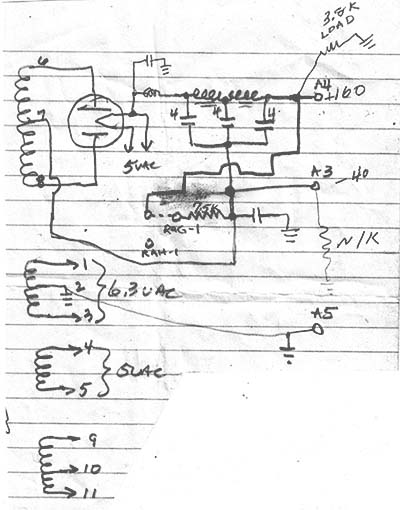 3.5K
LOAD
6
A4
+160
4
4
4
7
5VAC
8
A3
-40
7.5K
RAG-1
RAH-1
N/K
1
2
6.3VAC
3
A5
4
5VAC
5
9
10
11